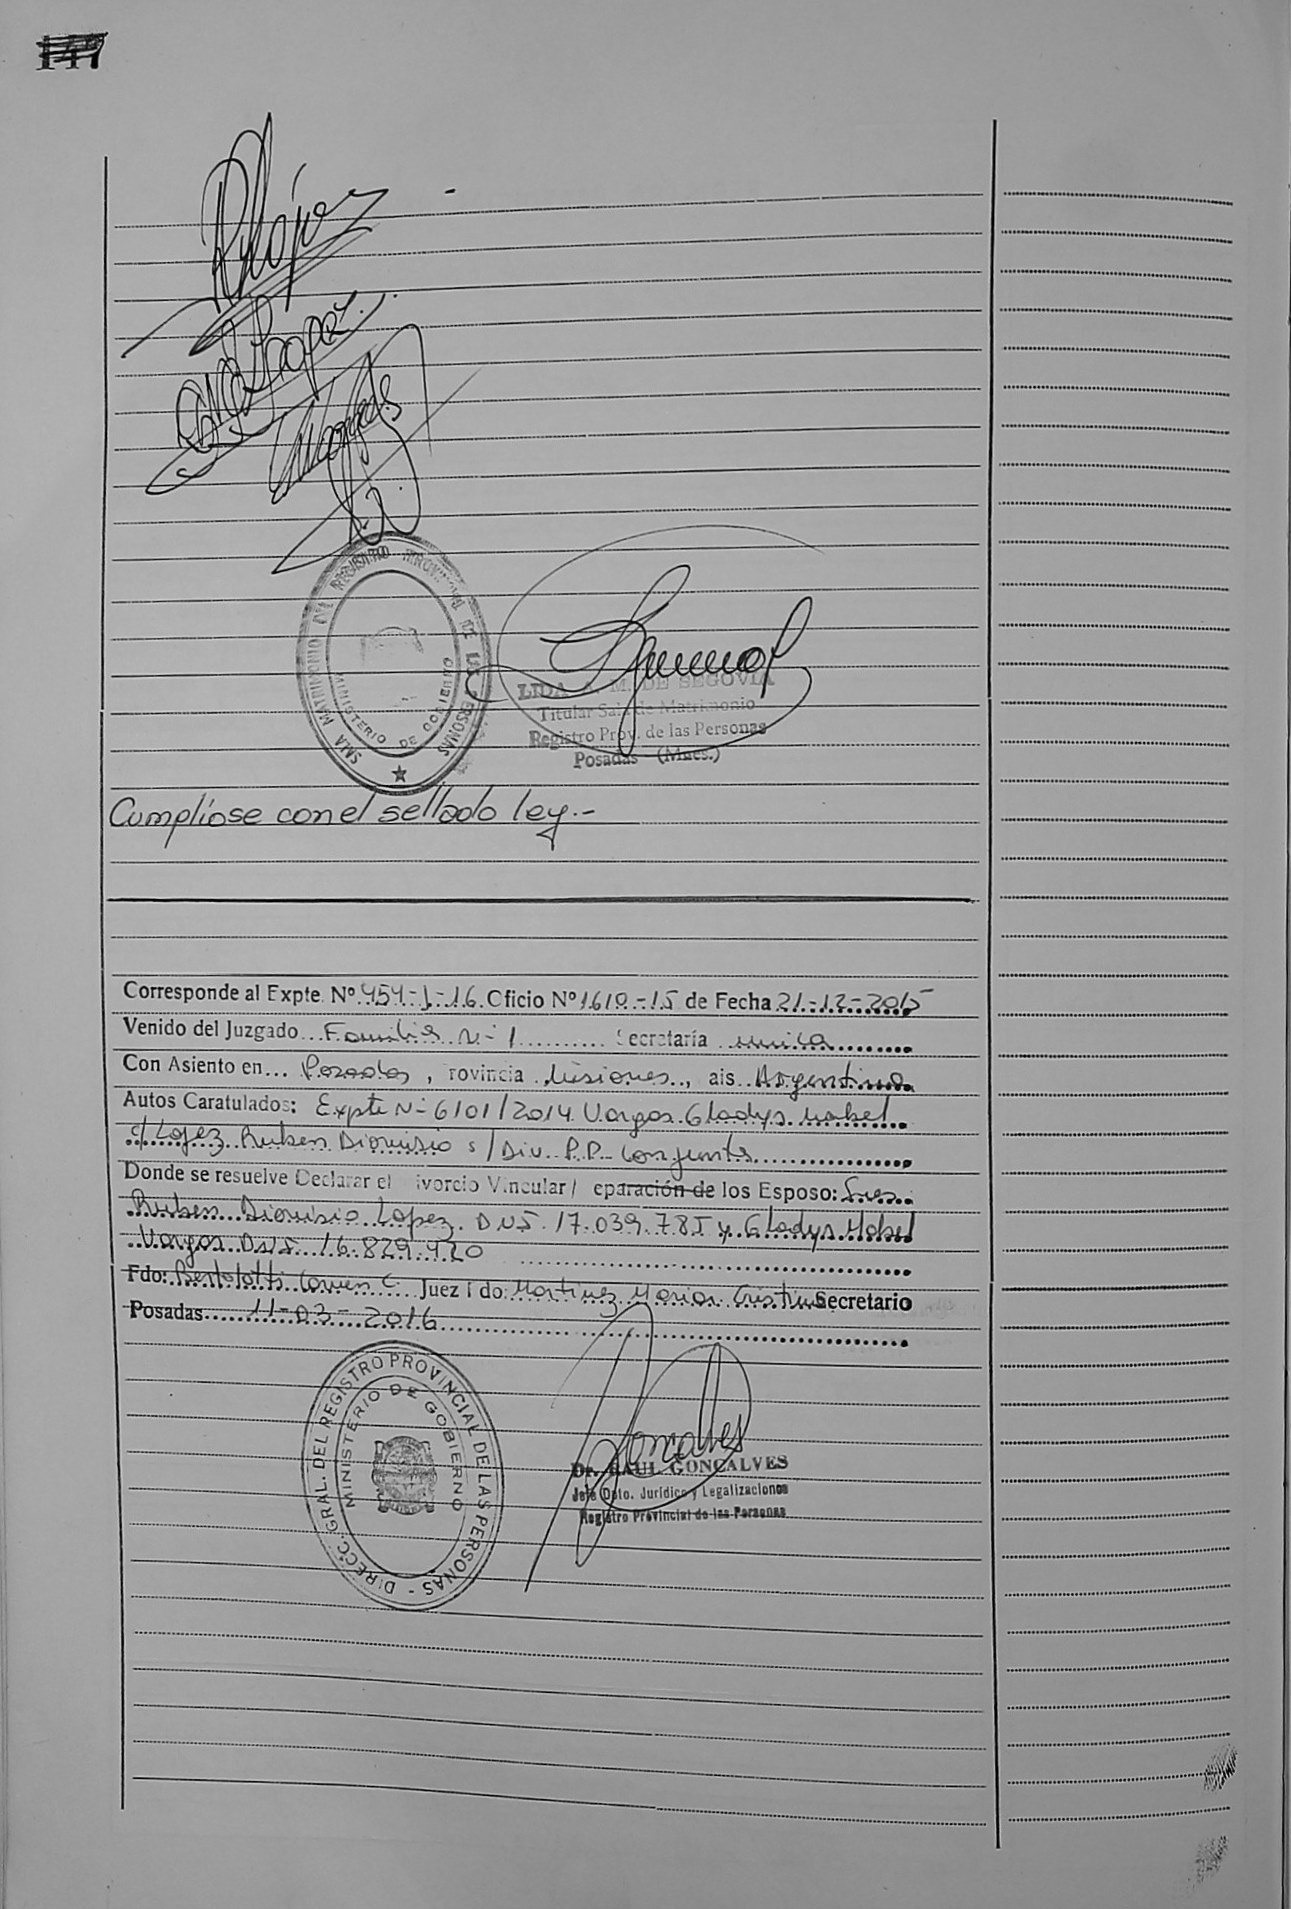 147
RLópez
López
SALA MATRIMONIO DEL REGISTRO PROVINCIAL DE LAS PERSONAS
MINISTERIO DE GOBIERNO
LIDA M. DE SEGOVIA
Titular Sala de Matrimonio
Registro Prov. de las Personas
Posadas (Mnes.)
Cumplióse con el sellado ley.-
Corresponde al Expte. Nº 454-J-16. Oficio Nº 1610-15 de Fecha 21-12-2015
Venido del Juzgado Familia Nº 1 Secretaría unica
Con Asiento en... Posadas, rovincia Misiones, ais Argentina
Autos Caratulados: Expte Nº 6101/2014 Vargas Gladys Mabel
c/ Lopez Ruben Dionisio s/ Div. P.P. Conjunta
Donde se resuelve Declarar el ivorcio Vincular/ eparación de los Esposo: Sres.
Ruben Dionisio Lopez DNI. 17.039.785 y Gladys Mabel
Vargas DNI. 16.829.420
Fdo: Bertolotti Carmen C. Juez Fdo: Martinez Maria Cristina Secretario
Posadas 11-03-2016
DIRECC. GRAL. DEL REGISTRO PROVINCIAL DE LAS PERSONAS -
MINISTERIO DE GOBIERNO
Goncalves
Dr. RAUL GONCALVES
Jefe Dpto. Jurídico y Legalizaciones
Registro Provincial de las Personas